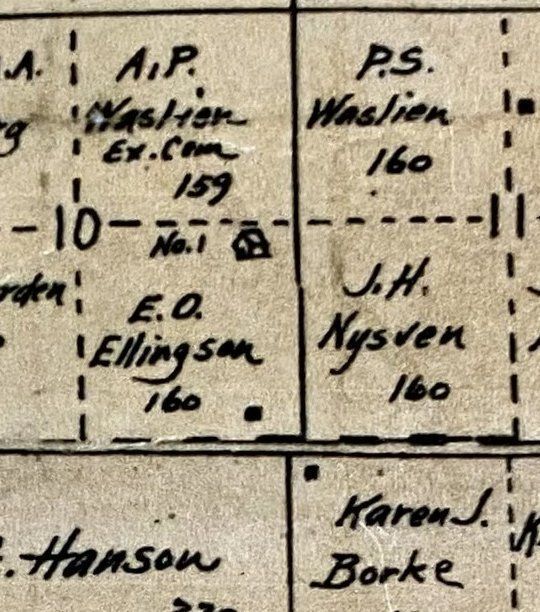 A.
A.P.
Waslien
Ex. Com
159
P.S.
Waslien
160
10
No.1
11
rden
E.O.
Ellingson
160
J.H.
Nysven
160
Hanson
Karen J.
Borke